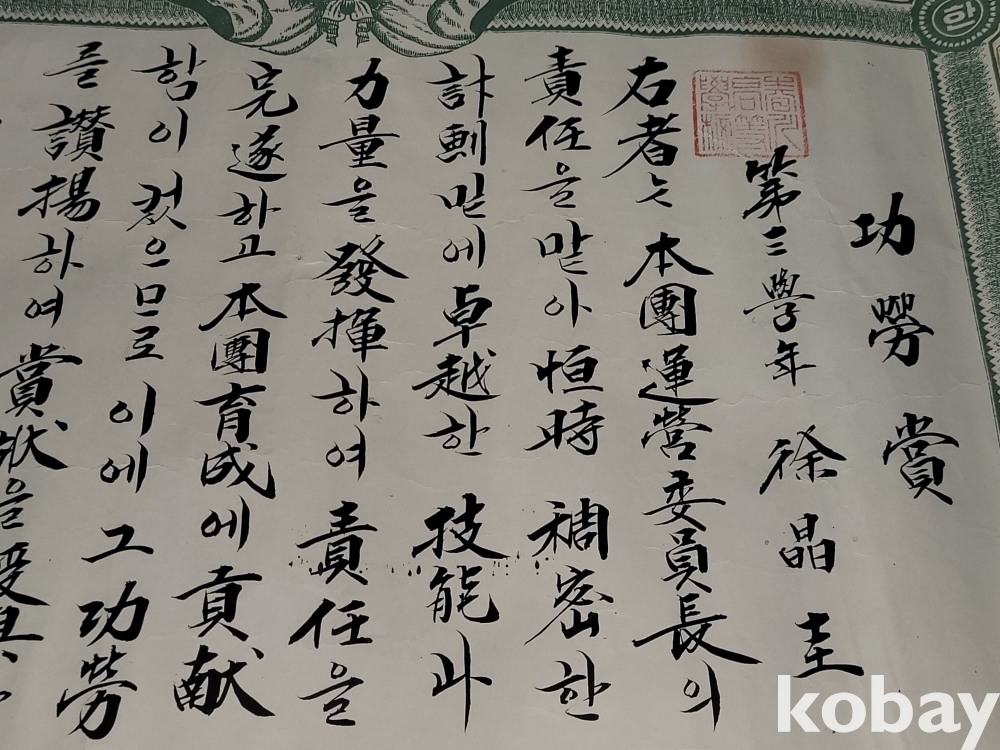 功勞賞
第三學年 徐晶圭
右者는 本團運營委員長의
責任을 맡아 恒時 稠密한
計劃 밑에 卓越한 技能과
力量을 發揮하여 責任을
完遂하고 本團育成에 貢献
함이 컸으므로 이에 그 功勞
를 讃揚하여 賞狀을
kobay